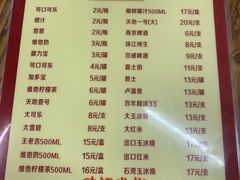 可口可乐 2元/瓶
橙汁 2元/瓶
雪碧 2元/瓶
维他奶 3元/瓶
健力宝 3元/罐
加多宝 5元/罐
维他柠檬茶 5元/罐
天地壹号 6元/罐
大可乐 8元/支
大雪碧 8元/支
王老吉500ML 15元/盒
维他奶500ML 15元/盒
维他柠檬茶500ML 16元/盒
椰树椰汁500ML 17元/盒
天地一号(大) 20元/支
燕京啤酒 6元/支
珠江纯生 8元/支
百威啤酒 8元/支
喜士伯 11元/支
爵士 13元/罐
卢嘉堡 13元/罐
百年糊涂33° 13元/支
大玉冰烧 17元/支
大红米 13元/支
出口玉冰烧 17元/支
出口红米 17元/支
石湾玉冰烧 17元/支